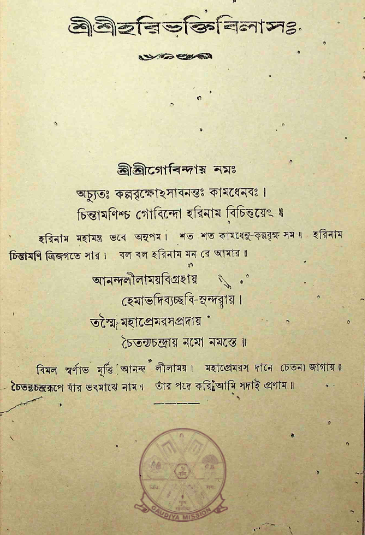 শ্রীশ্রীহরিভক্তিবিলাসঃ
শ্রীশ্রীগোবিন্দায় নমঃ
অচ্যুতঃ কল্পবৃক্ষোঽসাবনন্তঃ কামধেনবঃ।
চিন্তামণিশ্চ গোবিন্দো হরিনাম বিচিন্তয়েৎ॥
হরিনাম মহামন্ত্র ভবে অনুপম। শত শত কামধেনু-কল্পবৃক্ষ সম॥ হরিনাম
চিন্তামণি ত্রিজগতে সার। বল বল হরিনাম মন রে আমার॥
আনন্দলীলাময়বিগ্রহায়
হেমাভদিব্যচ্ছবি-সুন্দরায়।
তস্মৈ মহাপ্রেমরসপ্রদায়
চৈতন্যচন্দ্রায় নমো নমস্তে॥
বিমল স্বর্ণাভ মূর্ত্তি আনন্দ লীলাময়। মহাপ্রেমরস দানে চেতনা জাগায়॥
চৈতন্যচন্দ্ররূপে যাঁর ভবমাঝে নাম। তাঁর পদে করি আমি সদাই প্রণাম॥
GAUDIYA MISSION